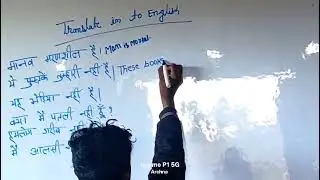 Translate in to English
मानव मरणशील है। Man is mortal
ये पुस्तकें तुम्हारी नहीं हैं। These books
यह भेड़िया नहीं है।
क्या मैं पतली नहीं हूँ?
हमलोग गरीब नहीं
मैं आलसी
me P1 5G
Archna